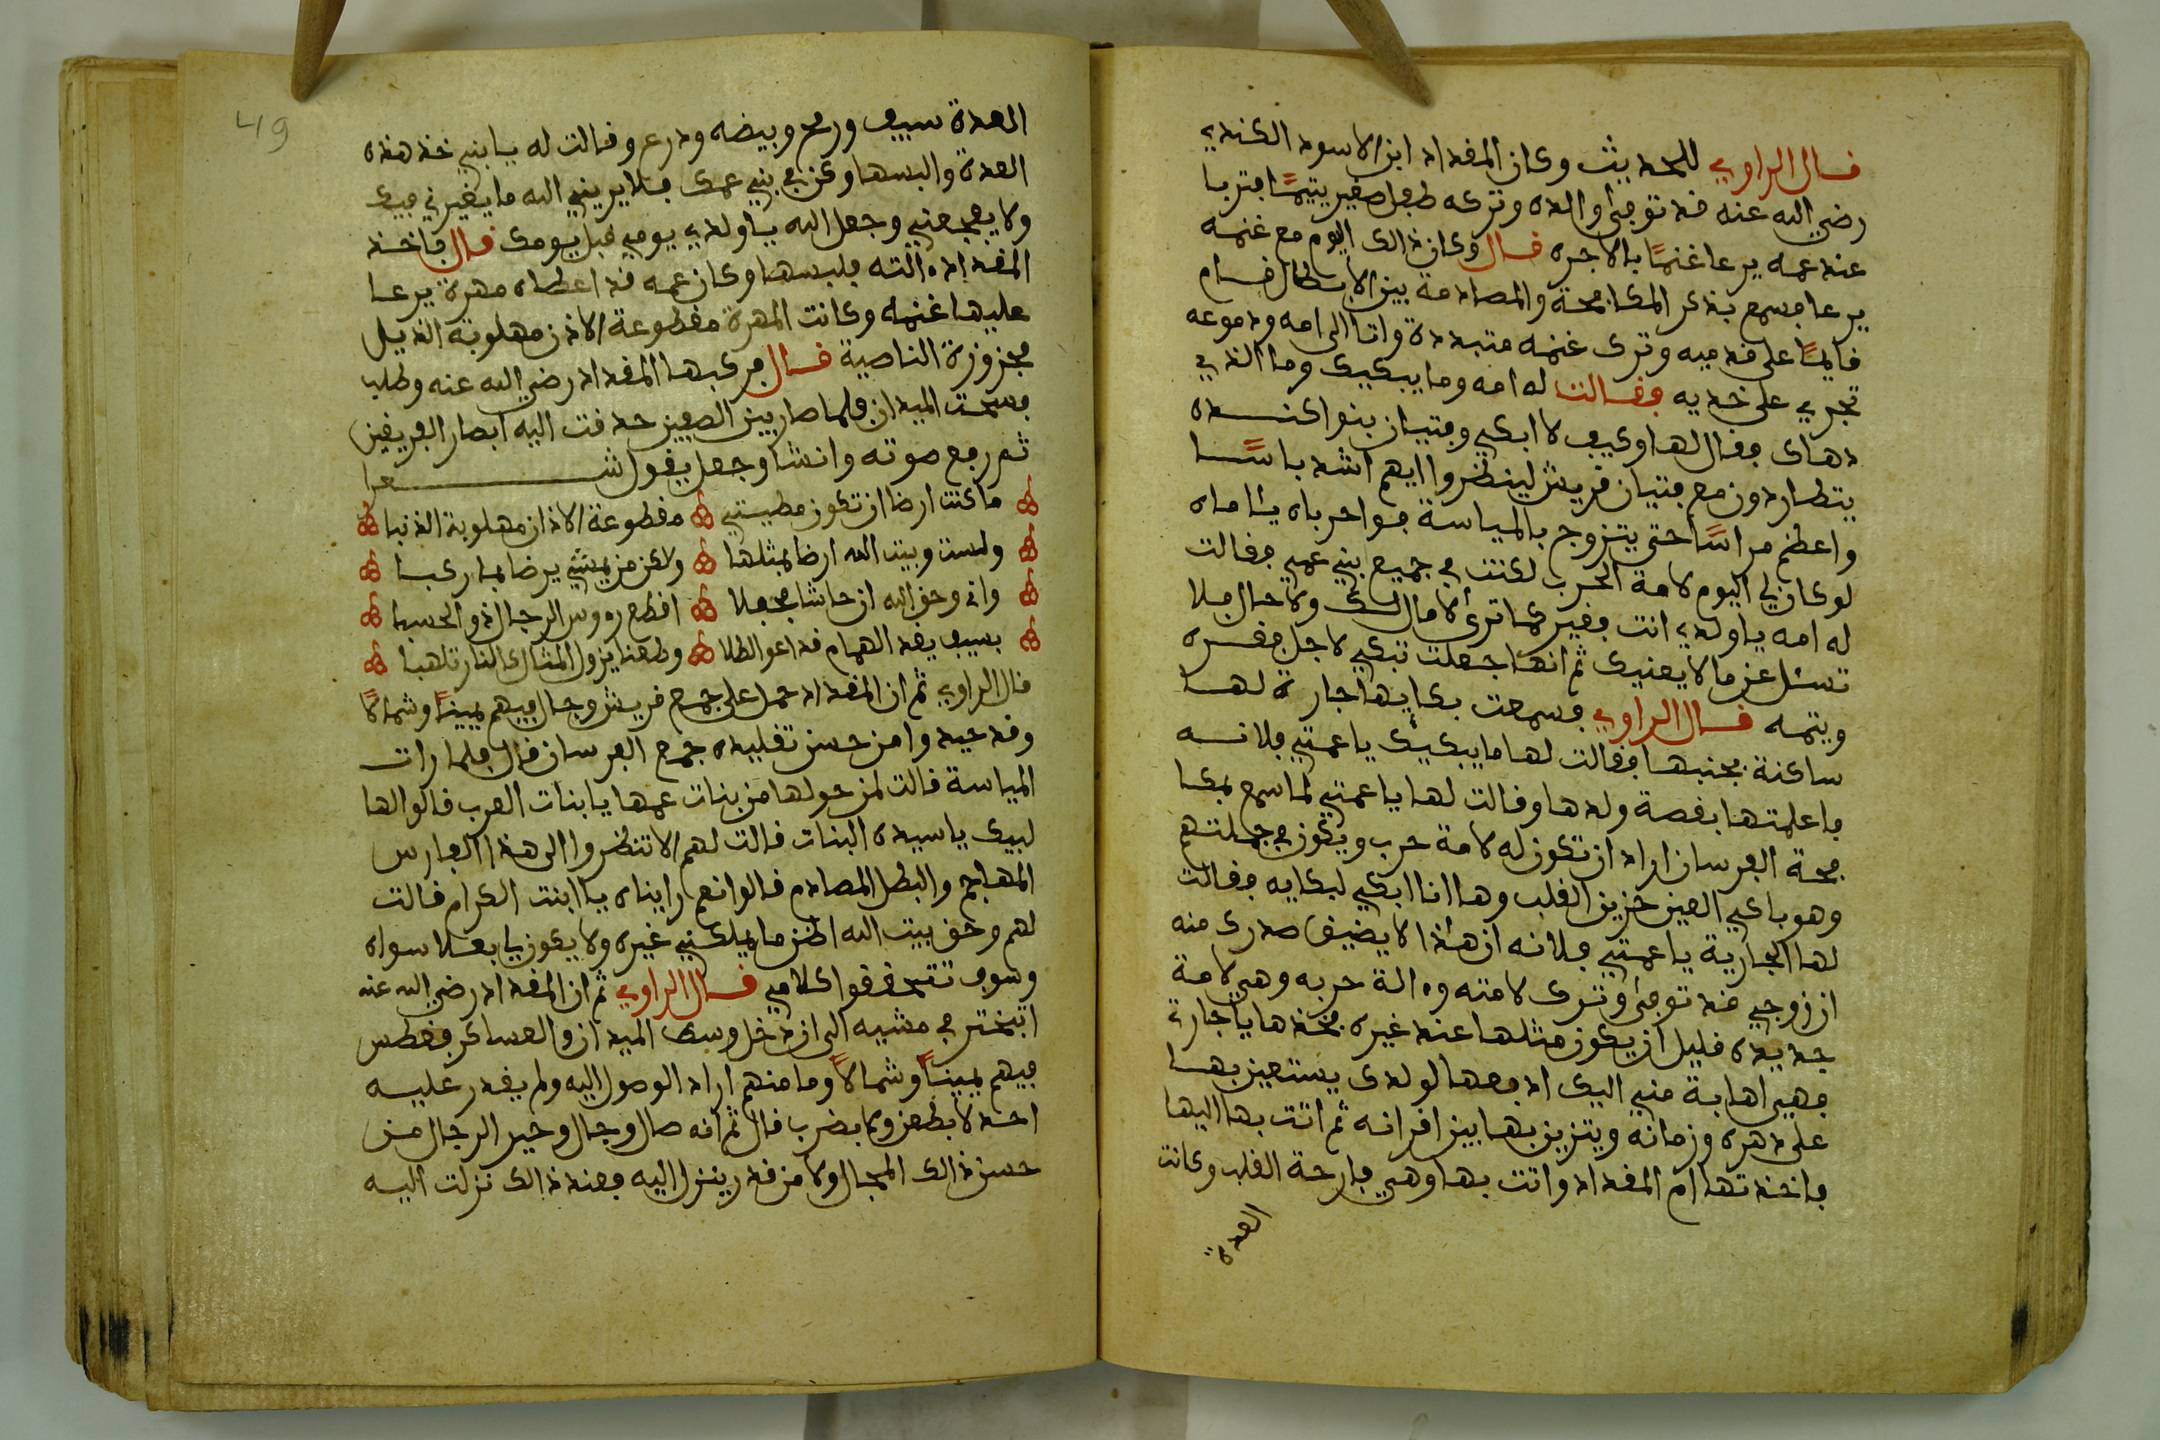 قال الراوي للحديث وكان المقداد ابن الاسود الكندي
رضي الله عنه قد توفي والده وتركه طفل صغير يتيمًا فتربا
عند عمه يرعا غنمًا بالاجره قال وكان ذالك اليوم مع غنمه
يرعا فسمع بذكر المكافحة والمصادمة بين الابطال فقام
قايمًا على قدميه وترك غنمه متبددة واتا الى امه ودموعه
تجري على خديه فقالت له امه وما يبكيك وما الذي
دهاك فقال لها وكيف لا ابكي وفتيان بنوا كنده
يتطاردون مع فتيان قريش لينظروا ايهم اشد باسًا
واعظم مراسًا حتى يتزوج بالمياسة فواحرباه يا اماه
لو كان لي اليوم لامة الحرب لكنت في جميع بني عمي فقالت
له امه يا ولدي انت فقير كما ترى لا مال لك ولا حال فلا
تسئل عن ما لا يعنيك ثم انها جعلت تبكي لاجل فقره
ويتمه قال الراوي فسمعت بكايها جارة لها
ساكنة بجنبها فقالت لها ما يبكيك يا عمتي فلانه
فاعلمتها بقصة ولدها وقالت لها يا عمتي لما سمع بمكا
فحة الفرسان اراد ان تكون له لامة حرب ويكون في جملتهم
وهو باكي العين حزين القلب وها انا ابكي لبكايه فقالت
لها الجارية يا عمتي فلانه ان هذا لا يضيق صدرك منه
ان زوجي قد توفي وترك لامته وءالة حربه وهي لامة
جديده قليل ان يكون مثلها عند غيره فخذها يا جارة
فهي اهابة مني اليك ادفعها لولدك يستعين بها
على دهره وزمانه ويتزين بها بين اقرانه ثم اتت بها اليها
فاخذتها ام المقداد واتت بها وهي فارحة القلب وكانت
العدة
49
العدة سيف ورمح وبيضه ودرع وقالت له يا بني خذ هذه
العدة والبسها وكن في بني عمك فلا يريني الله ما يغيرني فيك
ولا يفجعني وجعل الله يا ولدي يومي قبل يومك قال فاخذ
المقداد ءالته فلبسها وكان عمه قد اعطاه مهرة يرعا
عليها غنمه وكانت المهرة مقطوعة الاذن مهلوبة الذيل
مجزوزة الناصية قال فركبها المقداد رضي الله عنه وطلب
فسحت الميدان فلما صار بين الصفين حدقت اليه ابصار الفريقين
ثم رفع صوته وانشا وجعل يقول شعرا
ما كنت ارضا ان تكون مطيتي مقطوعة الاذان مهلوبة الذنبا
ولست وبيت الله ارضا بمثلها ولاكن من يمشي يرضا بما ركبا
واني وحق الله ان حاشا جحفلا اقطع رءوس الرجال ذو الحسبا
بسيف يقد الهام قد اعو الطلا وطعنا يزول المثال كالنار تلهبا
قال الراوي ثم ان المقداد حمل على جمع قريش وجال فيهم يمينًا وشمالًا
وقد حيدوا من حسن تقليده جمع الفرسان قال فلما رات
المياسة قالت لمن حولها من بنات عمها يا بنات العرب قالوا لها
لبيك يا سيدة البنات قالت لهم الا تنظروا الى هذا الفارس
المهاجم والبطل المصادم قالوا نعم رايناه يا ابنت الكرام قالت
لهم وحق بيت الله اظن ما يملكني غيره ولا يكون لي بعلا سواه
وسوف تتحققوا كلامي قال الراوي ثم ان المقداد رضي الله عنه
اتبختر في مشيه الى ان دخل وسط الميدان والعساكر فغطس
فيهم يمينًا وشمالًا وما منهم اراد الوصول اليه ولم يقدر عليه
احد لا بطعن ولا بضرب قال ثم انه صال وجال وحير الرجال من
حسن ذالك المجال ولا من قدر ينزل اليه فعند ذالك نزلت اليه